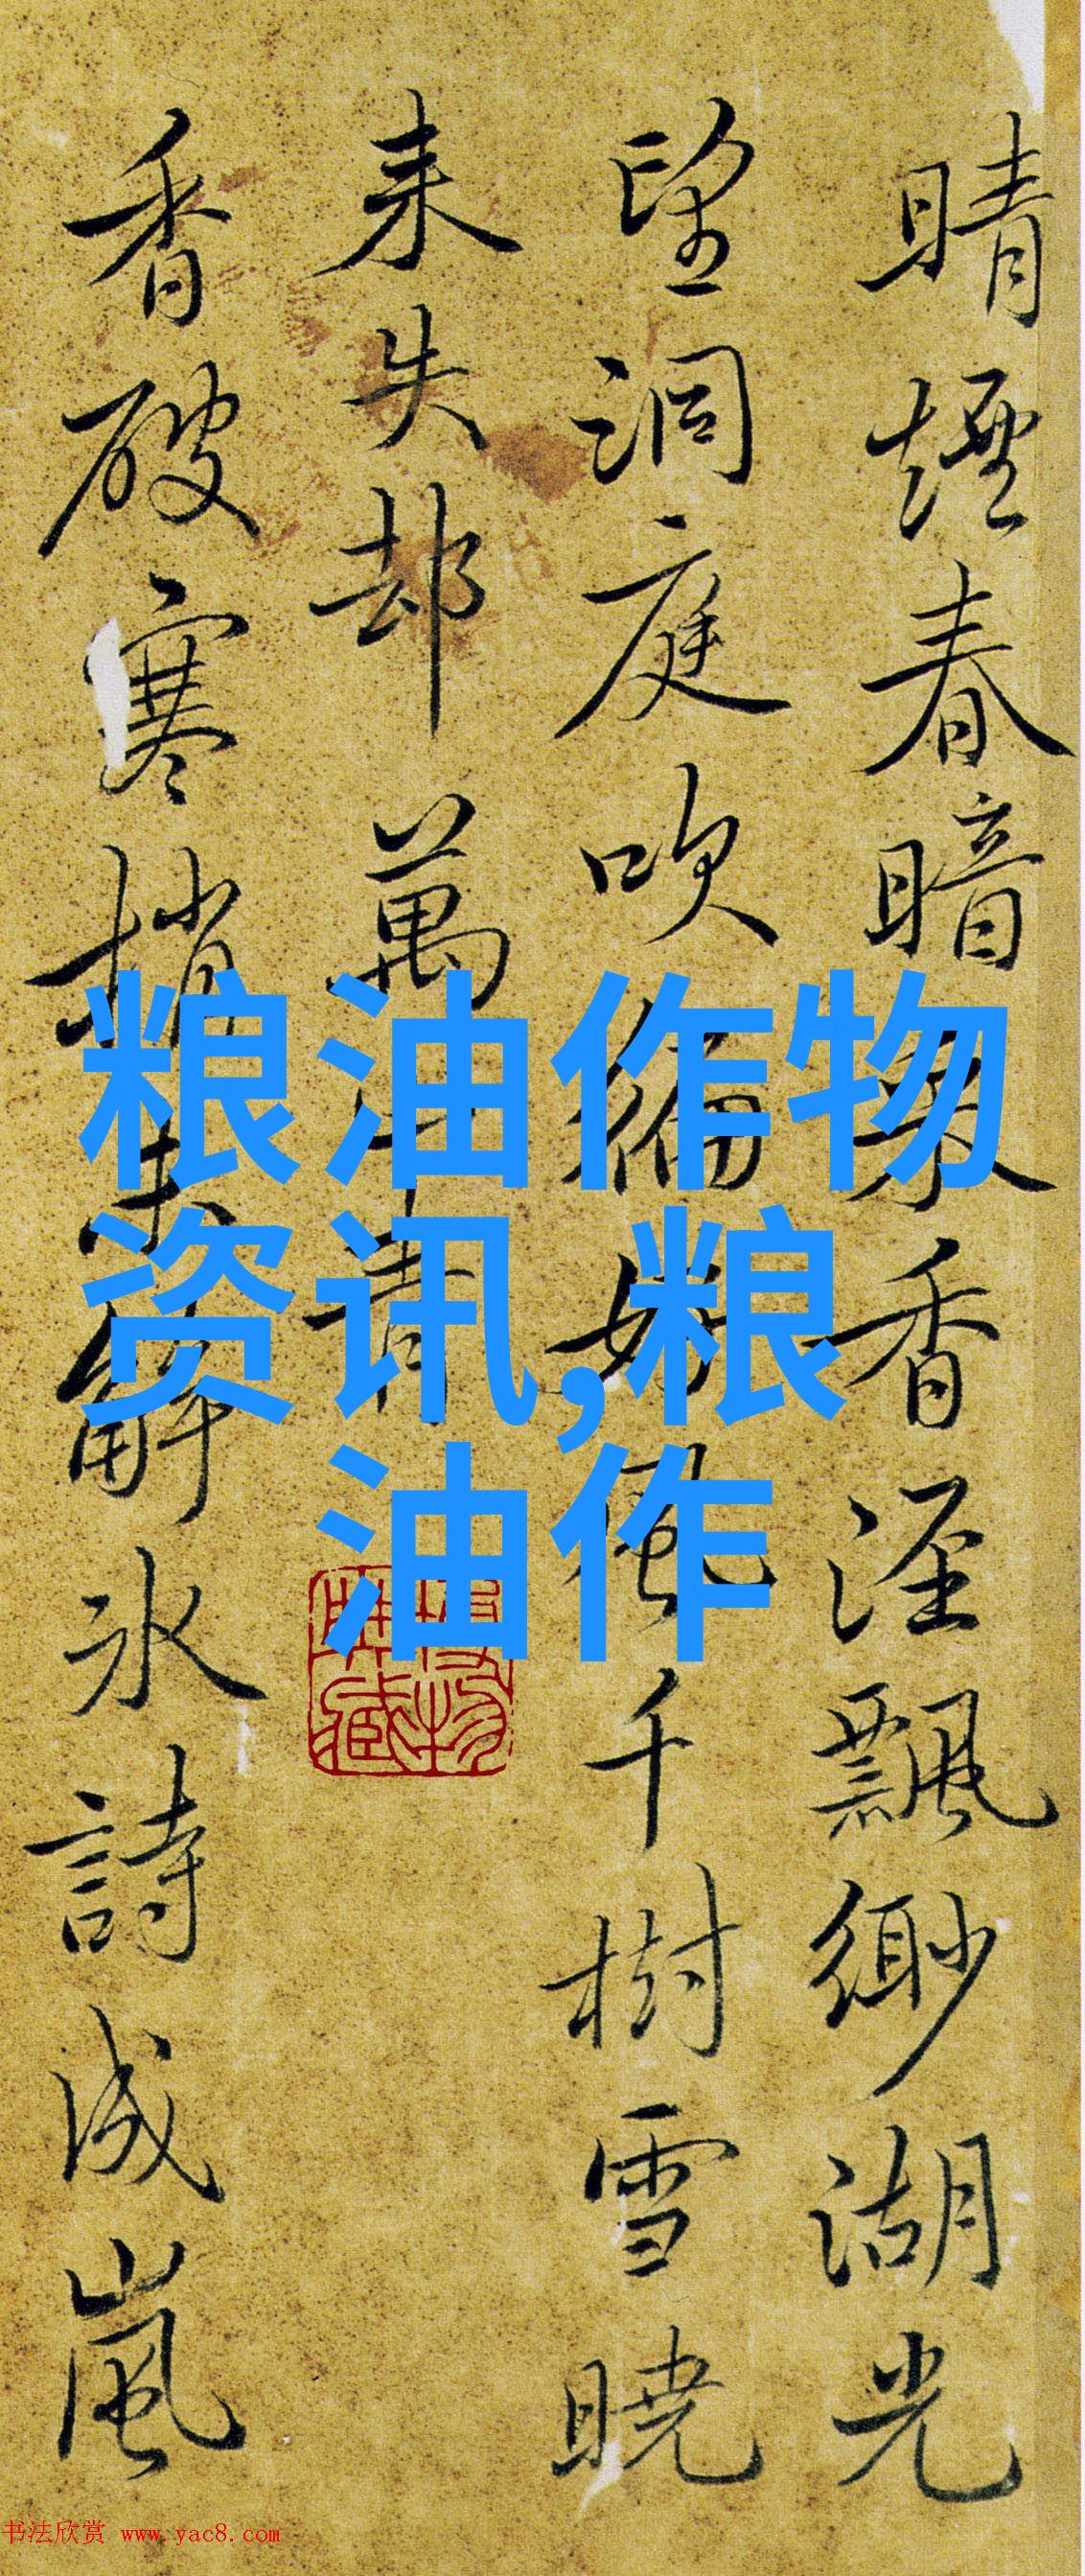 晴煙春暗香溼飄緲湖光
望洞庭吹好風千樹雪曉
来失却萬青
香破寒梢解冰詩成嵐
粮油作物
资讯,粮
油作
书法欣赏 www.yac8.com